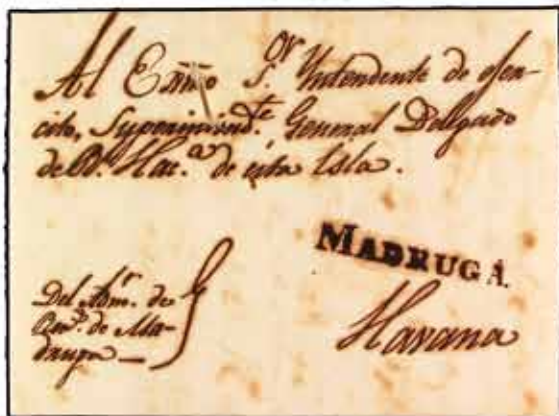 Al Exmo S.or Yntendente de exer-
cito, Superintend.te General Delegado
de Rl. Hac.a de esta Isla.
MADRUGA.
Havana
Del Adm.r de
de Ma-
druga